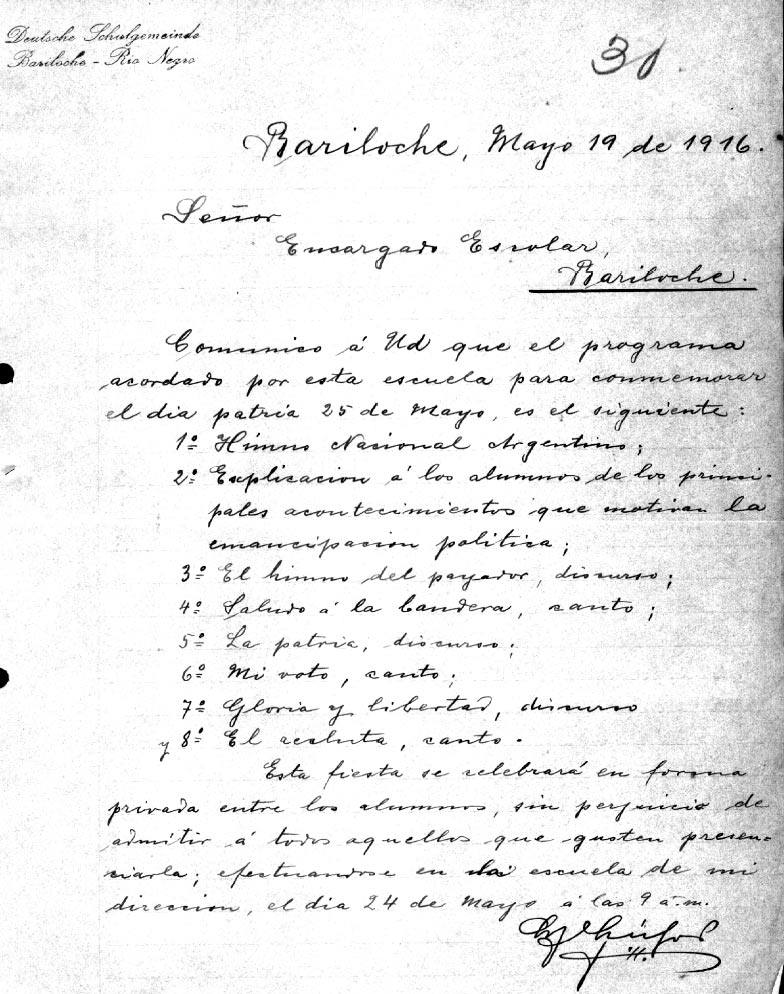 Deutsche Schulgemeinde
Bariloche - Rio Negro
31.
Bariloche, Mayo 19 de 1916.
Señor
Encargado Escolar,
Bariloche.
Comunico á Ud que el programa
acordado por esta escuela para conmemorar
el dia patria 25 de Mayo, es el siguiente:
1º Himno Nacional Argentino;
2º Esplicacion á los alumnos de los princi-
pales acontecimientos que motivan la
emancipacion politica;
3º El himno del payador, discurso;
4º Saludo á la bandera, canto;
5º La patria, discurso;
6º Mi voto, canto;
7º Gloria y libertad, discurso
y 8º El recluta, canto.
Esta fiesta se celebrará en forma
privada entre los alumnos, sin perjuicio de
admitir á todos aquellos que gusten presen=
ciarla; efectuandose en la escuela de mi
direccion, el dia 24 de Mayo á las 9 a.m.